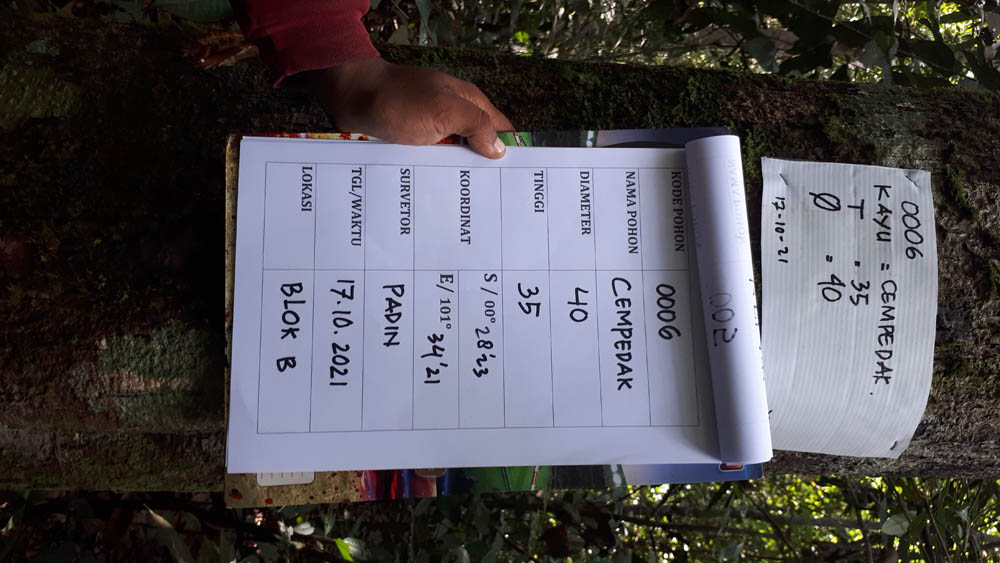 0006
KAYU = CEMPEDAK.
T = 35
Ø = 40
17-10-21
002
KODE POHON 0006
NAMA POHON CEMPEDAK
DIAMETER 40
TINGGI 35
KOORDINAT S / 00° 28'23
E/ 101° 34'21
SURVETOR PADIN
TGL/WAKTU 17.10.2021
LOKASI BLOK B